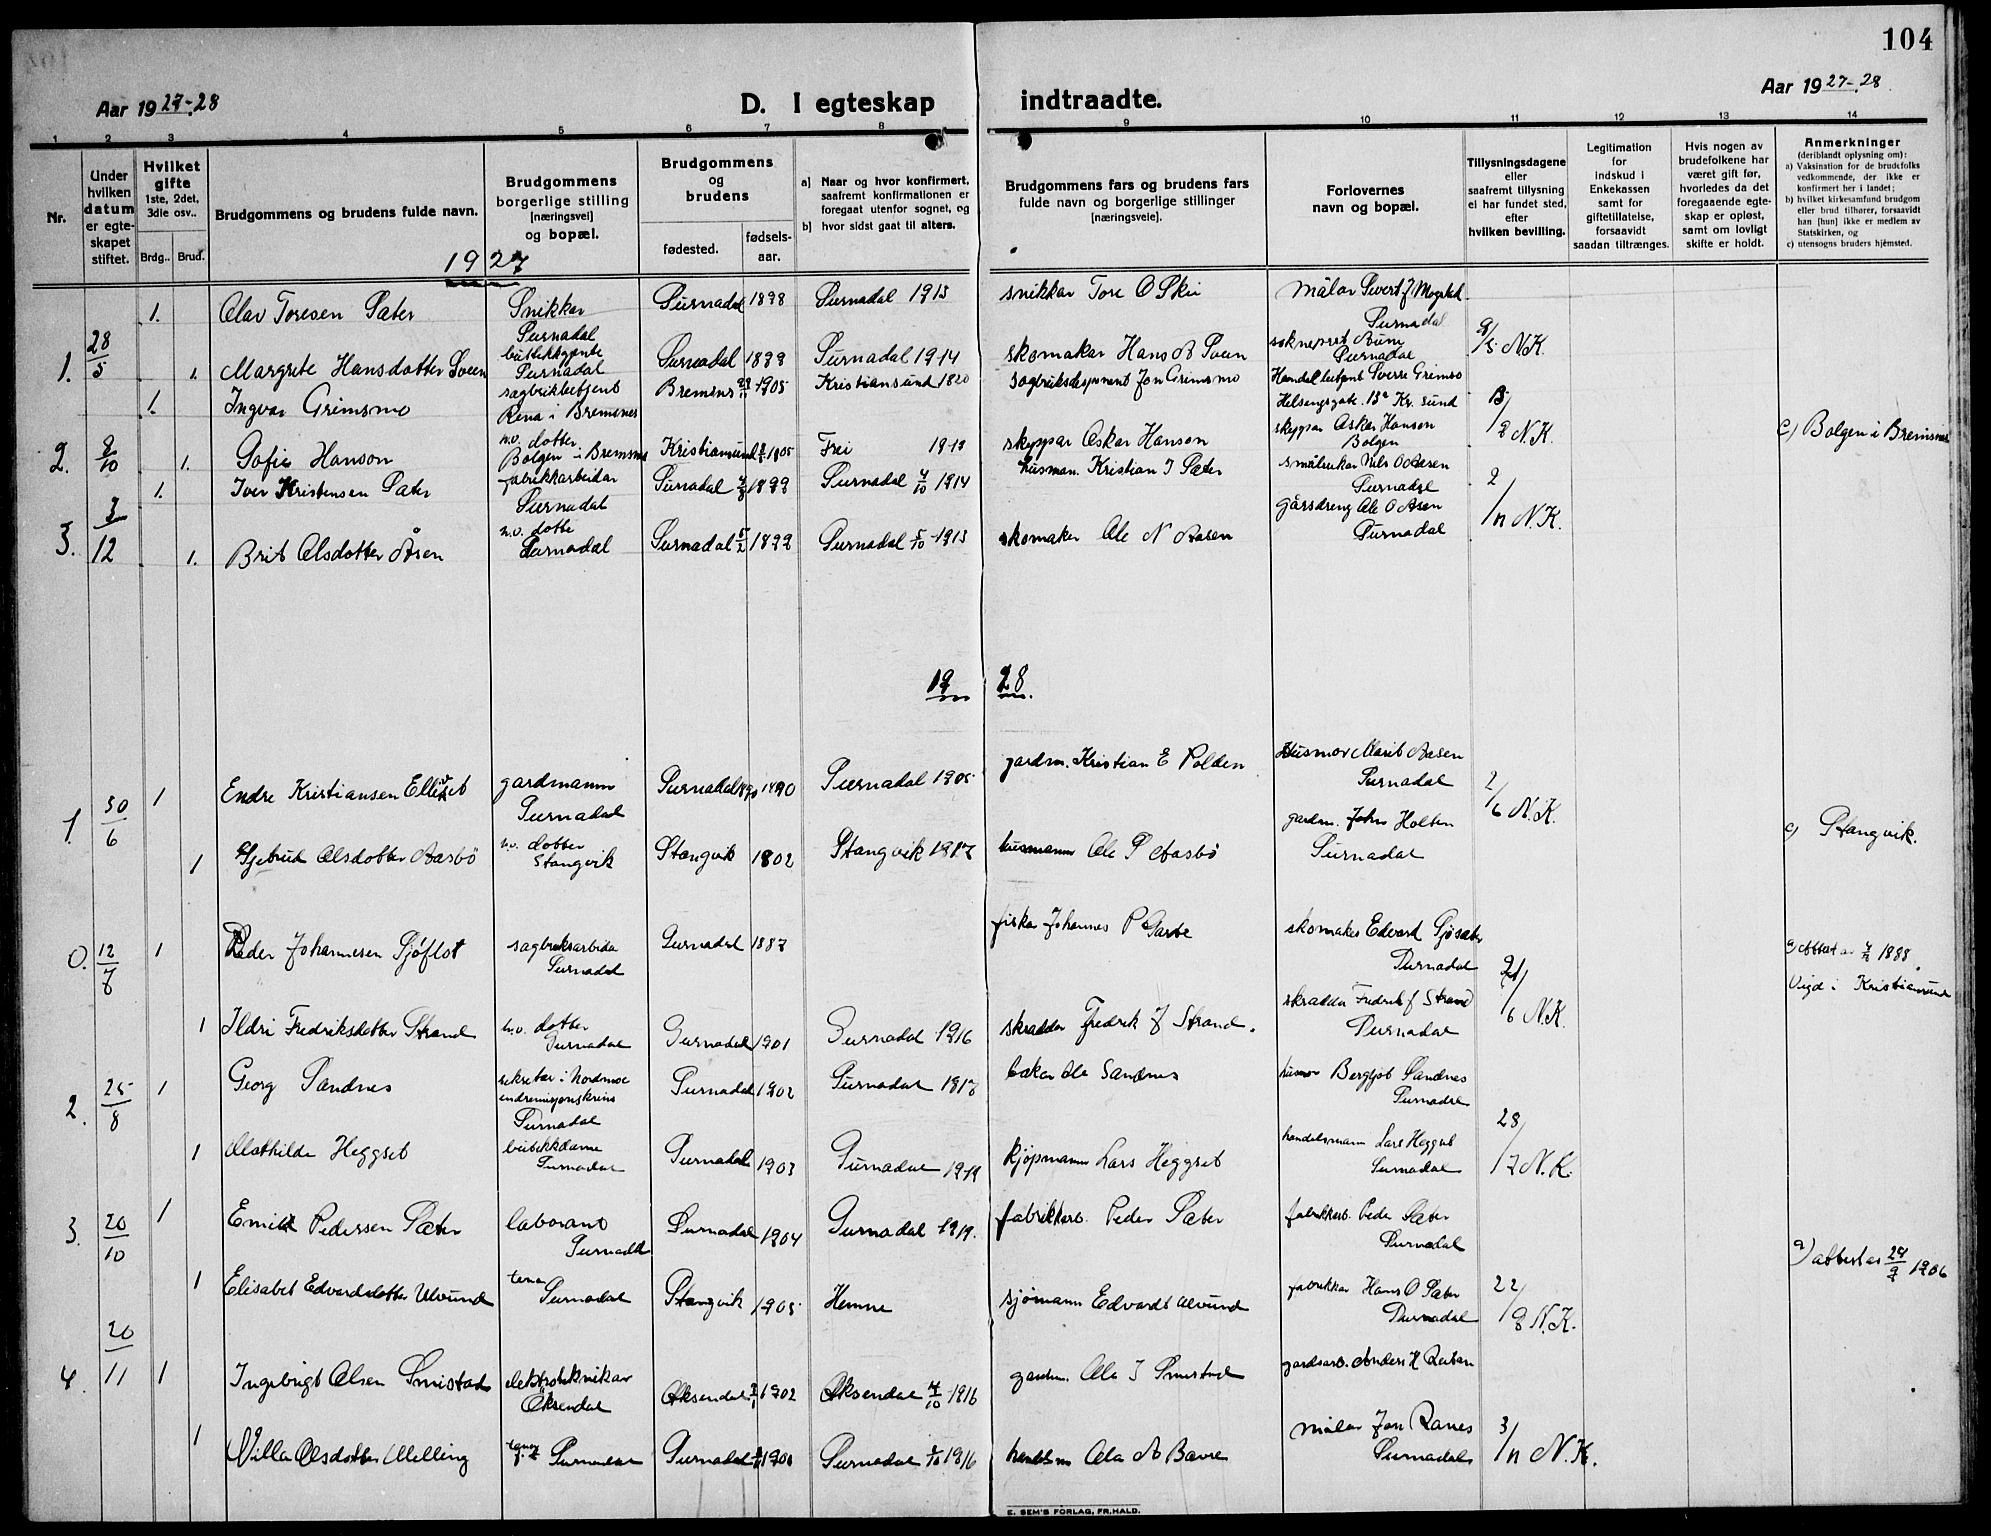 104
Aar 1927-28
D. I egteskap indtraadte.
Aar 1927-28
1 2 3 4 5 6 7 8 9 10 11 12 13 14
Nr.
Under hvilken datum er egteskapet stiftet.
Hvilket gifte 1ste, 2det, 3die osv..
Brdg.. Brud.
Brudgommens og brudens fulde navn.
Brudgommens borgerlige stilling [næringsvei] og bopæl.
Brudgommens og brudens
fødested.
fødselsaar.
a] Naar og hvor konfirmert, saafremt konfirmationen er foregaat utenfor sognet, og
b] hvor sidst gaat til alters.
Brudgommens fars og brudens fars fulde navn og borgerlige stillinger [næringsveie].
Forlovernes navn og bopæl.
Tillysningsdagene eller saafremt tillysning ei har fundet sted, efter hvilken bevilling.
Legitimation for indskud i Enkekassen samt for giftetillatelse, forsaavidt saadan tiltrænges.
Hvis nogen av brudefolkene har været gift før, hvorledes da det foregaaende egteskap er opløst, samt om lovligt skifte er holdt.
Anmerkninger (deriblandt oplysning om):
a) Vaksination for de brudefolks vedkommende, der ikke er konfirmert her i landet;
b) hvilket kirkesamfund brudgom eller brud tilhører, forsaavidt han [hun] ikke er medlem av Statskirken, og
c) utensogns bruders hjemsted.
1927
1. Olav Toresen Sæter Snikkar Surnadal Surnadal 1898 Surnadal 1913 snikkar Tore O Ski målar Sivert J. Mogstad Surnadal
1. 28/5 1. Margrete Hansdotter Sveen Surnadal Surnadal 1899 Surnadal 1914 skomakar Hans A Sveen Surnadal 9/5 N.K.
1. Ingvar Grimsmo Rena i Bremsnes Bremsnes 1905 Kristiansund 1920 Jon Grimsmo Sverre Grimsmo Kr.sund
2. 8/10 1. Sofie Hanson u.v. dotter Bolgen i Bremsnes Kristiansund 1905 Frei 1919 skyppar Oskar Hanson skyppar Oskar Hanson Bolgen N.K. c) Bolgen i Bremsnes
1. Iver Kristensen Sæter fabrikkarbeidar Surnadal Surnadal 1899 Surnadal 4/10 1914 husman. Kristian I Sæter småbrukar Nils O Aasen Surnadal
3. 3/12 1. Brit Olsdotter Åsen u.v. dotter Surnadal Surnadal 5/2 1899 Surnadal 5/10 1913 skomaker Ole N Aasen gårsdreng Ole O Asen Surnadal 2/11 N.K.
1928.
1. 30/6 1 Endre Kristiansen Ellevset gardmann Surnadal Surnadal 1890 Surnadal 1905 gardm. Kristian E Polden Husmor Marit Aasen Surnadal 2/6 N.K.
1 Olsdotter Aasbö u.v. dotter Stangvik Stangvik 1902 Stangvik 1917 husmann Ole P Aasbö gardm. John Holten Surnadal c) Stangvik.
0. 12/7 1 Peder Johannesen Sjöflot sagbruksarbeidar Surnadal Surnadal 1887 fisker Johannes P Garte skomaker Edvard Sjösæter Surnadal 21/6 N.K. 1888. Vigd i Kristiansund
1 Ildri Fredriksdotter Strand u.v. dotter Surnadal Surnadal 1901 Surnadal 1916 skradder Fredrik J Strand. skradder Fredrik J Strand Surnadal
2. 25/8 1 Georg Sandnes sekretær i Nordmøre Surnadal Surnadal 1902 Surnadal 1917 baker Ole Sandnes husmor Bergljot Sandnes Surnadal 28/7 N.K.
1 Mathilde Heggset butikkdame Surnadal Surnadal 1903 Surnadal 1919 kjøpmann Lars Heggset handelsmann Lars Heggset Surnadal
3. 20/10 1 Emil Pedersen Sæter laborant Surnadal Surnadal 1904 Surnadal 1919. fabrikkarb. Peder Sæter fabrikkarb. Peder Sæter Surnadal
1 Elisabet Edvardsdotter Ulvund Surnadal Stangvik 1905 Hemne sjømann Edvardt Ulvund fabrikkar Hans O Sæter Surnadal 22/9 N.K. a) attest av 1906
4. 20/11 1 Ingebrigt Olsen Smistad elektroteknikar Øksendal Øksendal 1902 Øksendal 4/10 1916 gardm. Ola I Smistad gardsarb. Anders H
1 Villa Olsdotter Melling Surnadal Surnadal 1900 Surnadal 1916 Ola A Bævre målar Jon Ranes Surnadal 3/11 N.K.
E. SEM'S FORLAG, FR.HALD.